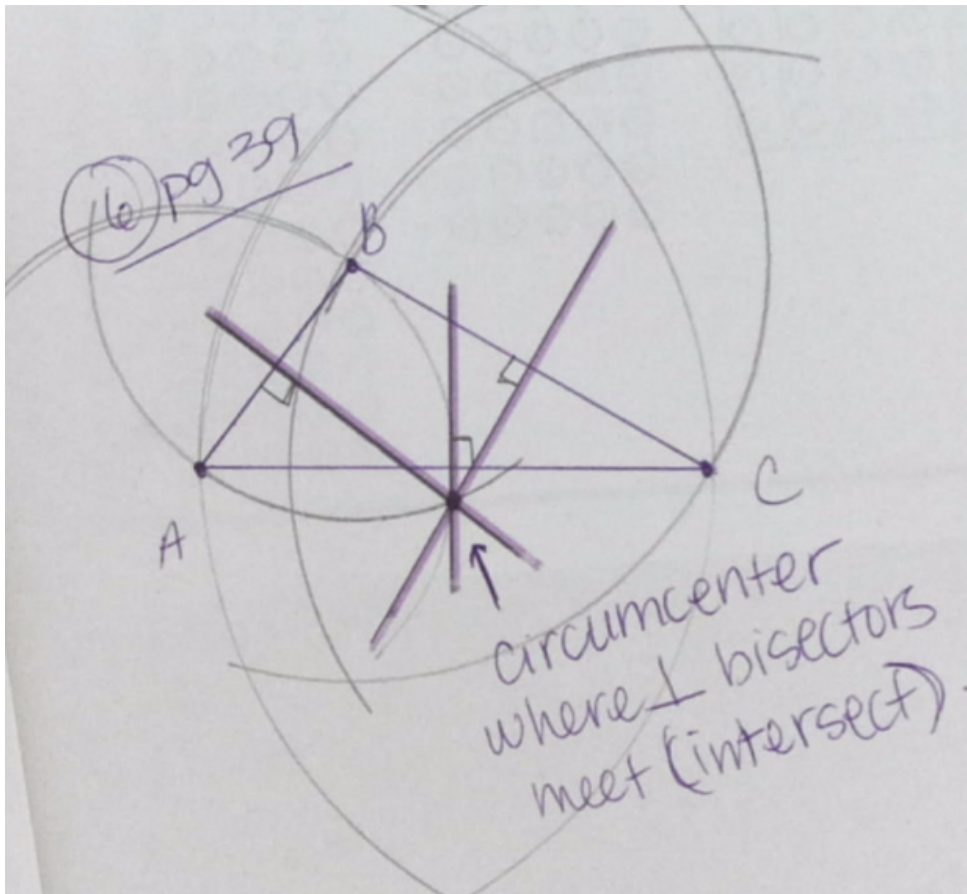 6 pg 39
B
A
C
circumcenter
where ⊥ bisectors
meet (intersect).